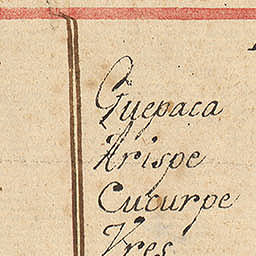 Guepaca
Arispe
Cucurpe
Vres